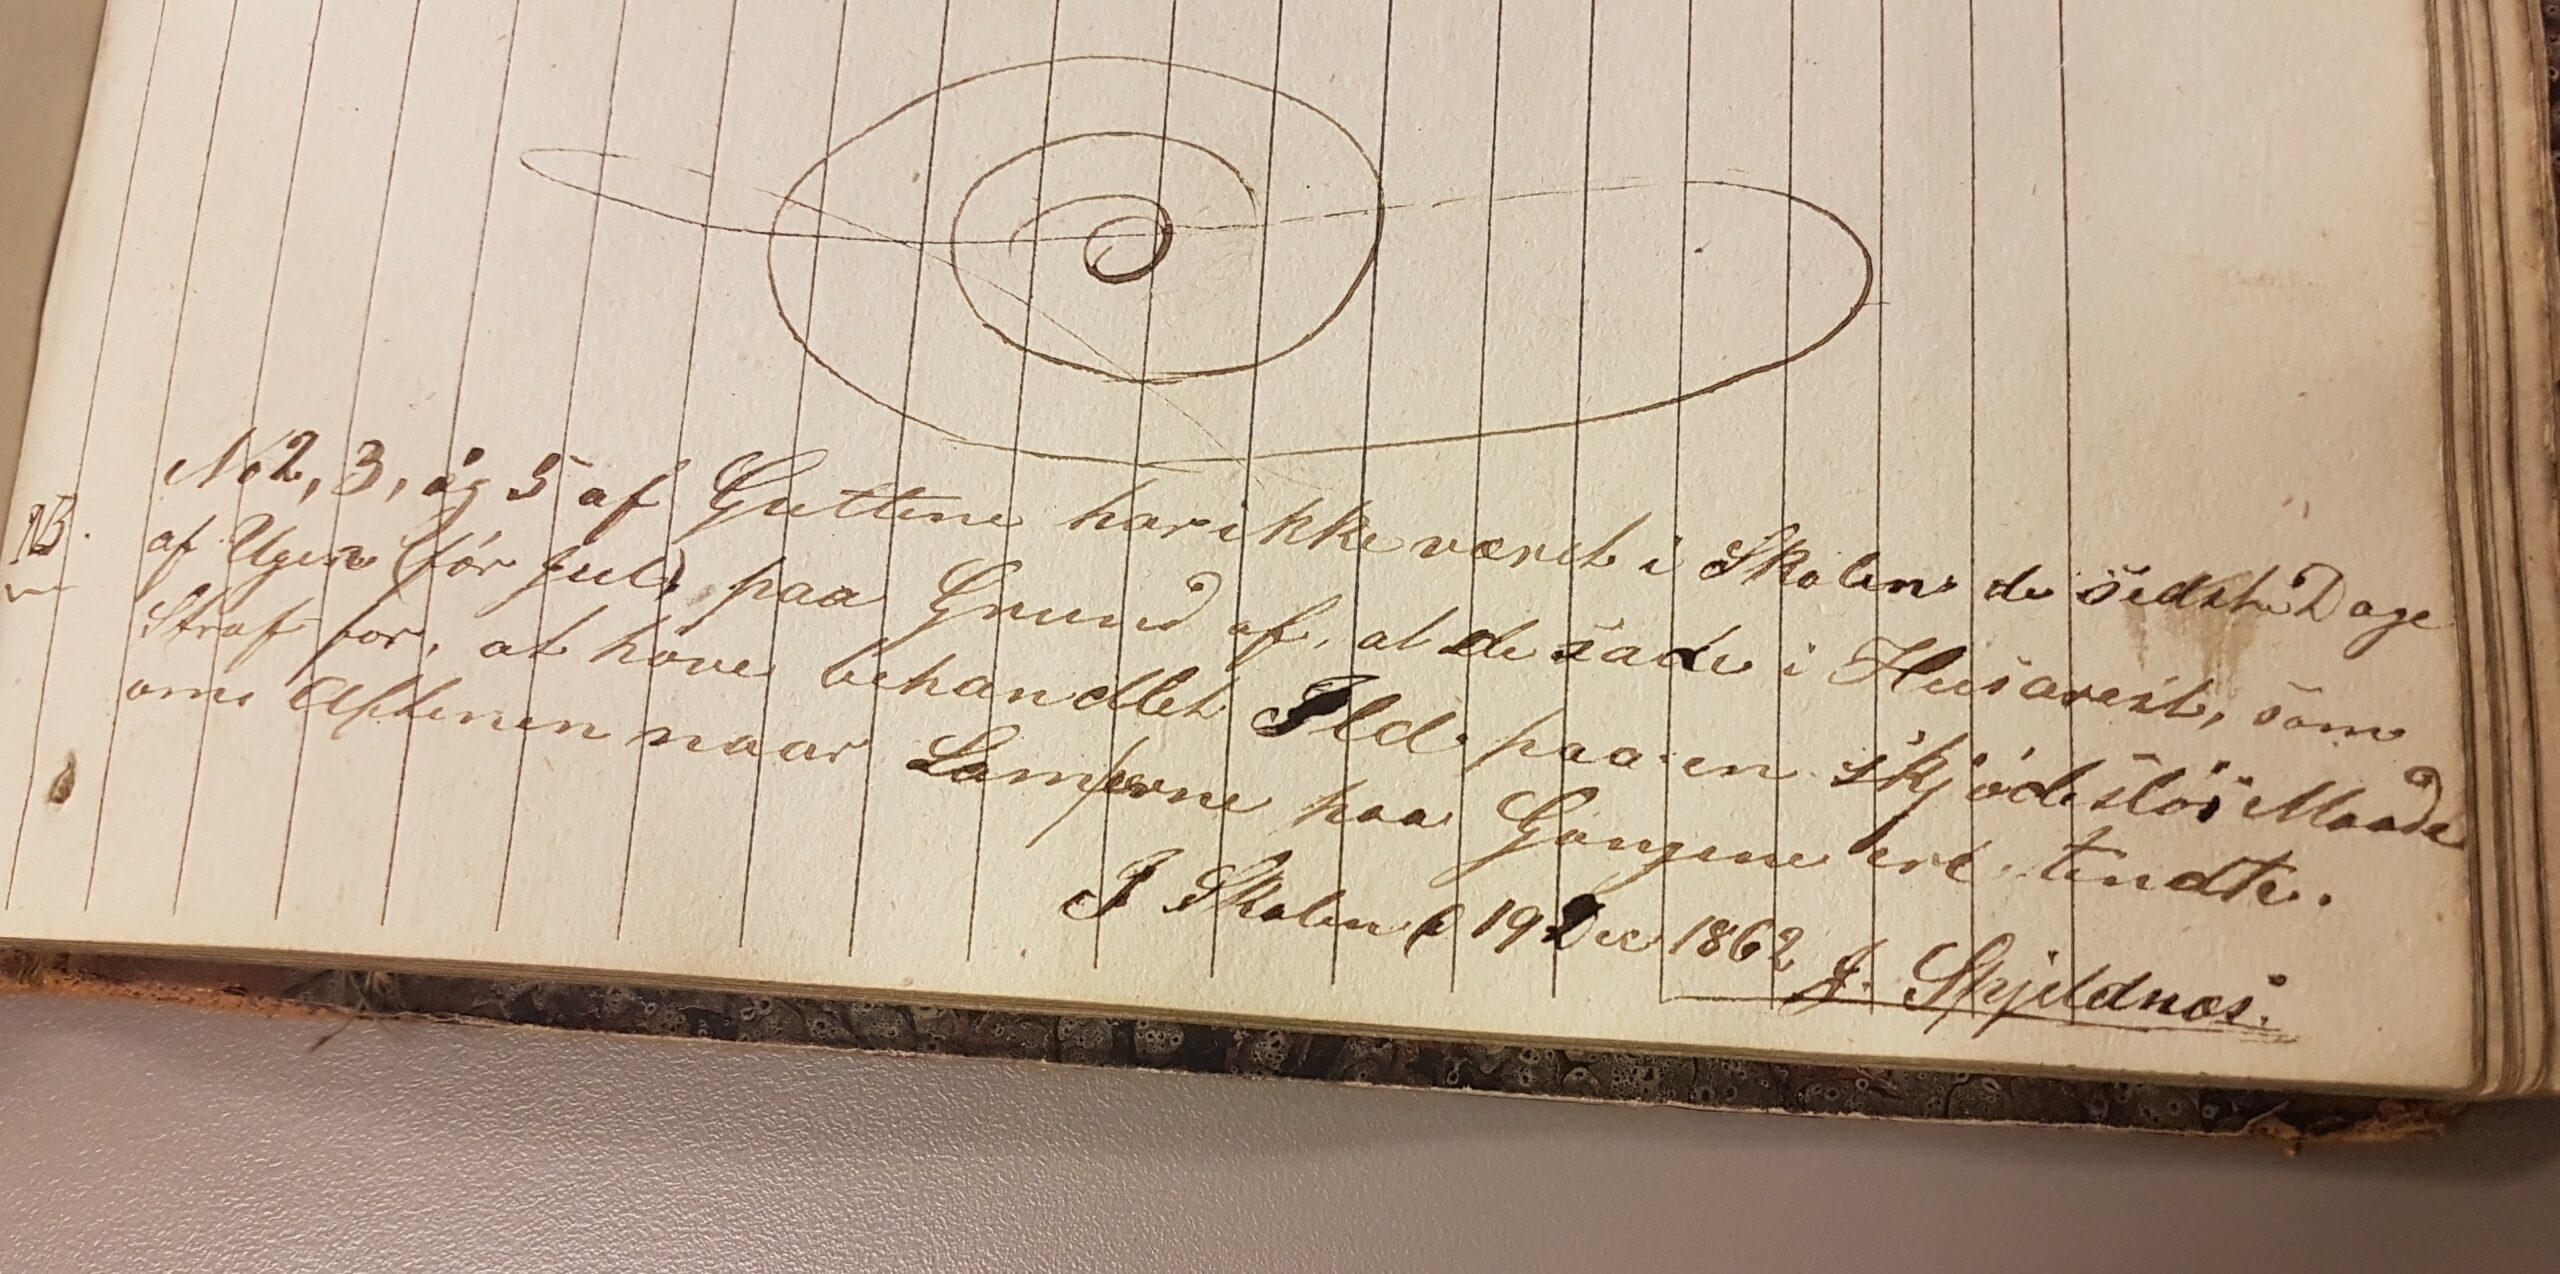 No 2, 3, og 5 af Guttene har ikke været i Skolen de sidste Dage
NB. af Ugen (før Jul) paa Grund af, at de sade i Husarest, som
Straf for, at have behandlet Ild paa en skjødesløs Maade
om Aftenen naar Lamperne paa Gangene ere tendte.
I Skolen d 19 Dec 1862 J. Skjeldnæs.